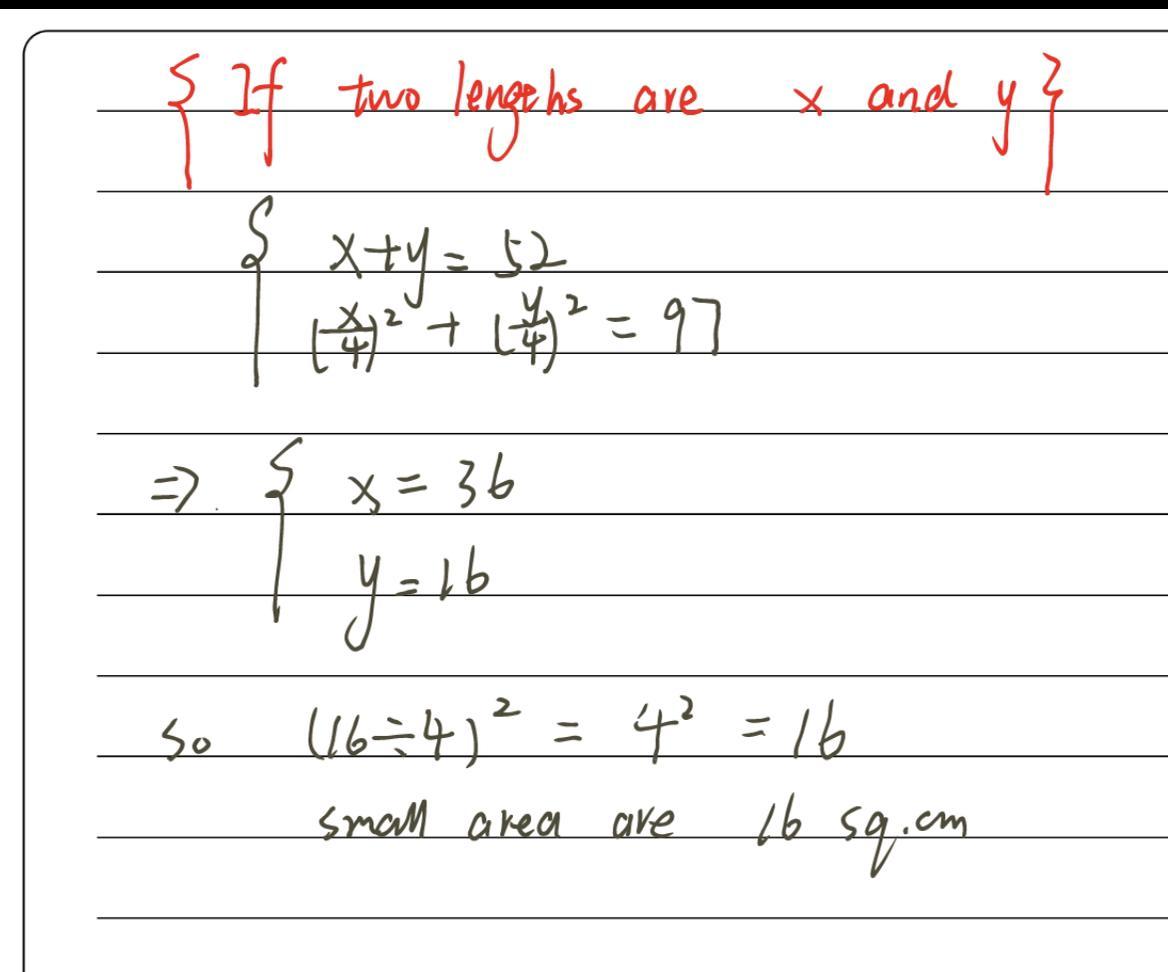 { If two lengths are x and y }
{ x+y = 52
(x/4)² + (y/4)² = 97
⇒ { x = 36
y = 16
so (16÷4)² = 4² = 16
small area are 16 sq.cm